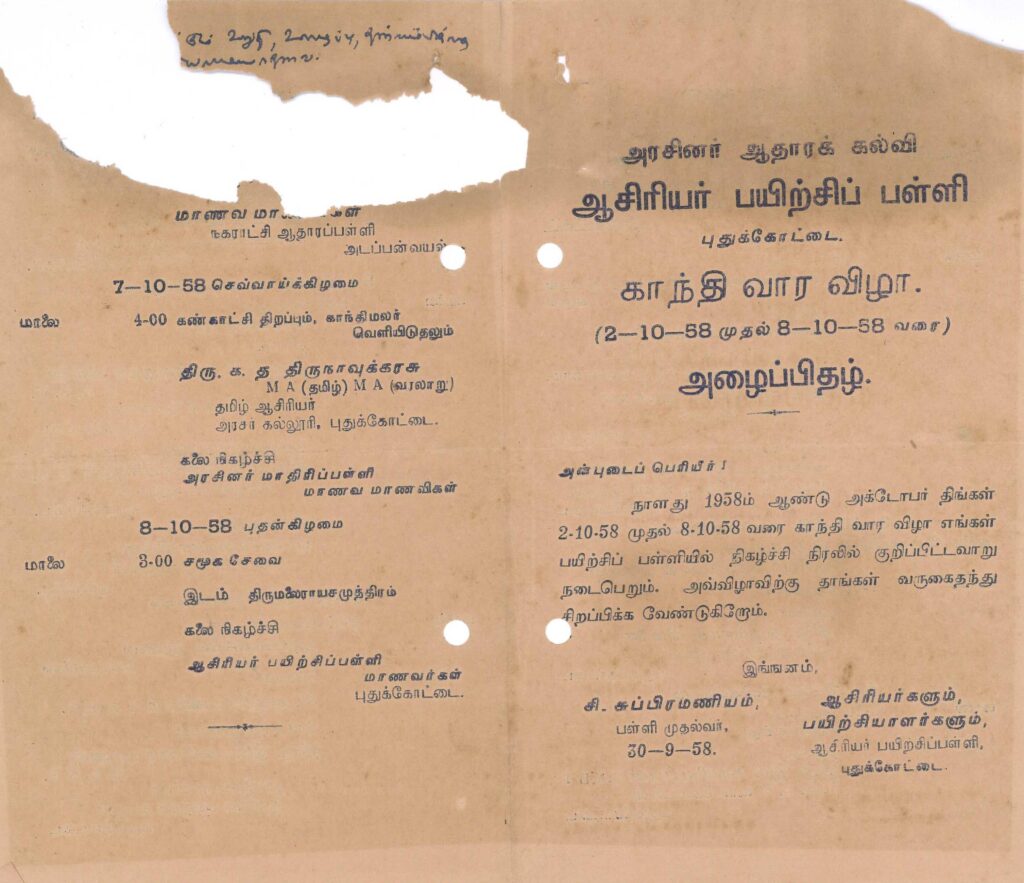 உறுதி, உழைப்பு,
மாணவ
நகராட்சி ஆதாரப்பள்ளி
அடப்பன்வயல்
7—10—58 செவ்வாய்க்கிழமை
மாலை 4-00 கண்காட்சி திறப்பும், காந்திமலர்
வெளியிடுதலும்
திரு. க. த திருநாவுக்கரசு
M A (தமிழ்) M A (வரலாறு)
தமிழ் ஆசிரியர்
அரசர் கல்லூரி, புதுக்கோட்டை.
கலை நிகழ்ச்சி
அரசினர் மாதிரிப்பள்ளி
மாணவ மாணவிகள்
8—10—58 புதன்கிழமை
மாலை 3-00 சமூக சேவை
இடம் திருமலைராயசமுத்திரம்
கலை நிகழ்ச்சி
ஆசிரியர் பயிற்சிப்பள்ளி
மாணவர்கள்
புதுக்கோட்டை.
அரசினர் ஆதாரக் கல்வி
ஆசிரியர் பயிற்சிப் பள்ளி
புதுக்கோட்டை.
காந்தி வார விழா.
(2—10—58 முதல் 8—10—58 வரை)
அழைப்பிதழ்.
அன்புடைப் பெரியீர் !
நாளது 1958ம் ஆண்டு அக்டோபர் திங்கள்
2-10-58 முதல் 8-10-58 வரை காந்தி வார விழா எங்கள்
பயிற்சிப் பள்ளியில் நிகழ்ச்சி நிரலில் குறிப்பிட்டவாறு
நடைபெறும். அவ்விழாவிற்கு தாங்கள் வருகைதந்து
சிறப்பிக்க வேண்டுகிறோம்.
இங்ஙனம்,
சி. சுப்பிரமணியம்,
பள்ளி முதல்வர்,
30—9—58.
ஆசிரியர்களும்,
பயிற்சியாளர்களும்,
ஆசிரியர் பயிற்சிப்பள்ளி,
புதுக்கோட்டை.